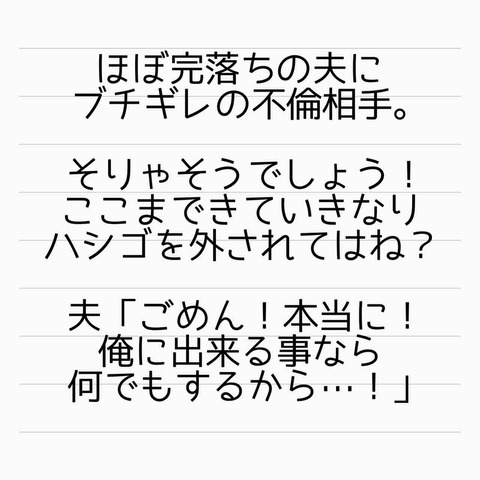 ほぼ完落ちの夫に
ブチギレの不倫相手。
そりゃそうでしょう！
ここまできていきなり
ハシゴを外されてはね？
夫「ごめん！本当に！
俺に出来る事なら
何でもするから…！」